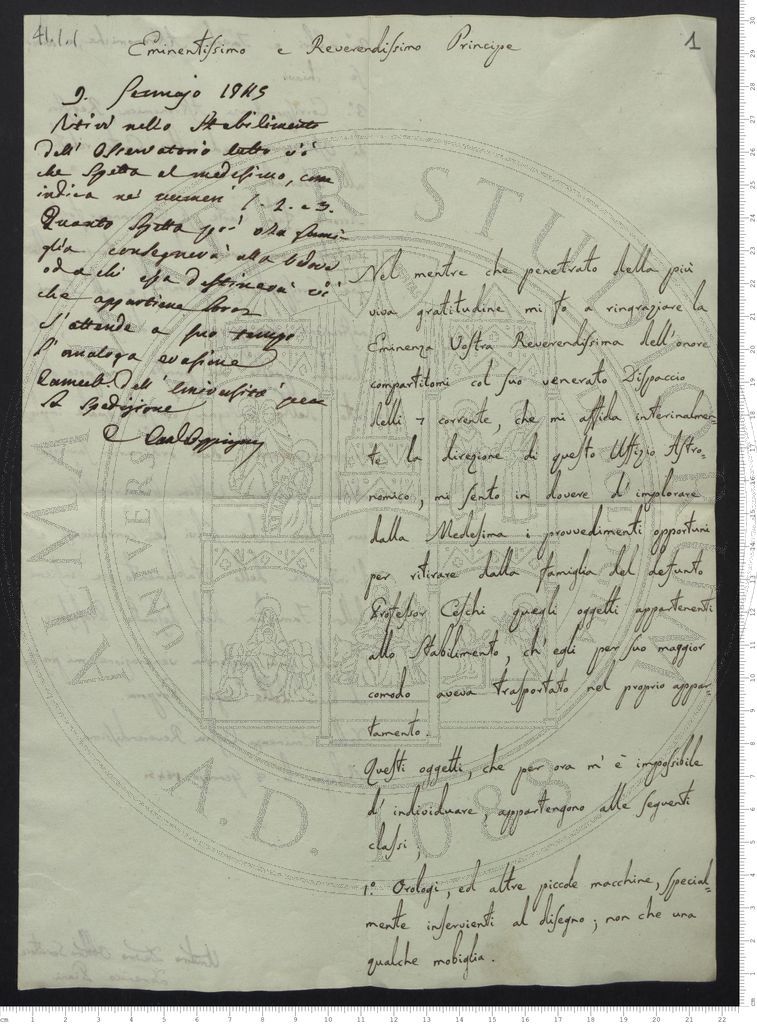 41.1.1
1
Eminentissimo e Reverendissimo Principe
9. Gennajo 1845
Ritiri nello Stabilimento
dell' Osservatorio tutto ciò
che spetta al medesimo, come
indica ne' numeri 1. 2. e 3.
Quanto spetta poi alla fami-
glia consegnerà alla vedova
o a chi essa destinerà ciò
che appartiene loro
S'attende a suo tempo
l'analoga evasione
Cancell. dell' Università per
la spedizione
C Card Oppizzoni
Nel mentre che penetrato della più
viva gratitudine mi fo a ringraziare la
Eminenza Vostra Reverendissima dell'onore
compartitomi col suo venerato Dispaccio
delli 7 corrente, che mi affida interinalmen=
te la direzione di questo Uffizio Astro=
nomico, mi sento in dovere d'implorare
dalla Medesima i provvedimenti opportuni
per ritirare dalla famiglia del defunto
Professor Ceschi quegli oggetti appartenenti
allo Stabilimento, ch'egli per suo maggior
comodo aveva trasportato nel proprio appar=
tamento.
Questi oggetti, che per ora m'è impossibile
d'individuare, apppartengono alle seguenti
classi;
1.° Orologi, ed altre piccole macchine, special=
mente inservienti al disegno; non che una
qualche mobiglia.
ALMA MATER STUDIORUM
UNIVERS
A.D. 1088